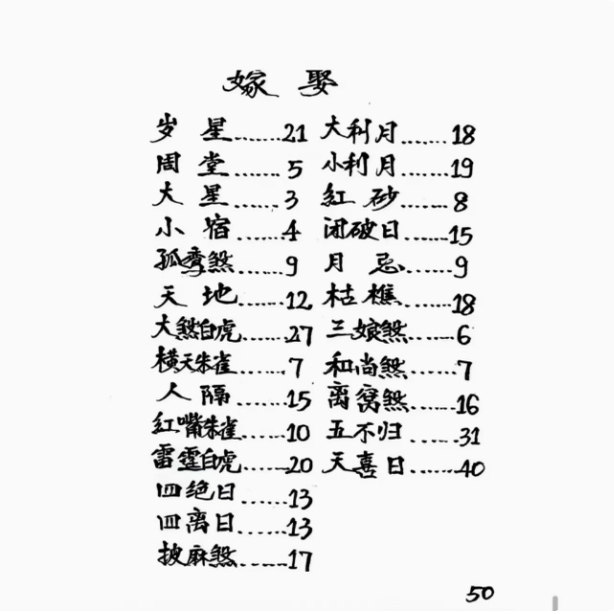 嫁 娶
岁 星......21
周 堂......5
大 星......3
小 宿......4
孤鸾煞......9
天 地......12
大煞白虎......27
横天朱雀......7
人 隔......15
红嘴朱雀......10
雷霆白虎......20
四绝日......13
四离日......13
披麻煞......17
大利月......18
小利月......19
紅 砂......8
闭破日......15
月 忌......9
枯 樵......18
三娘煞......6
和尚煞......7
离窝煞......16
五不归......31
天喜日......40
50